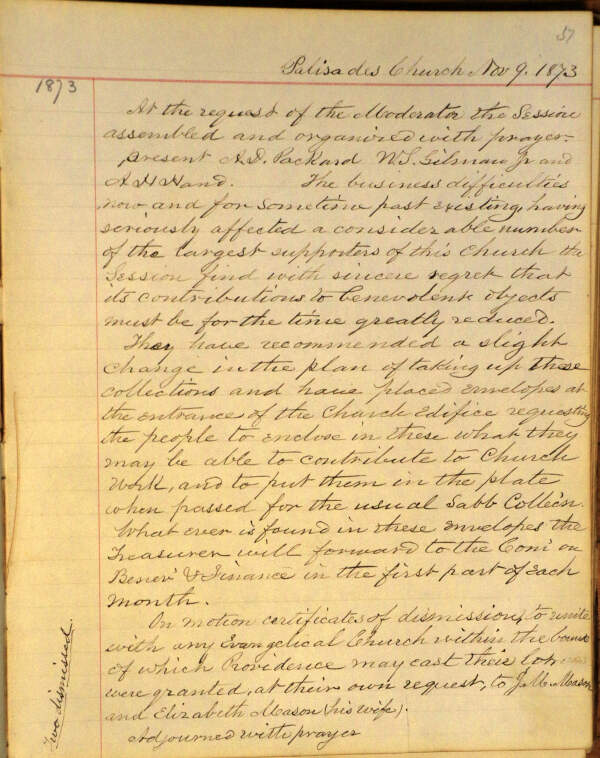 57
Palisades Church Nov 9. 1873
1873
At the request of the Moderator the Session
assembled and organized with prayer.
present A.D. Packard W.S. Gilman Jr and
A H Hand. The business difficulties
now and for sometime past existing, having
seriously affected a considerable number
of the largest supporters of this Church the
Session find with sincere regret that
its contributions to benevolent objects
must be for the time greatly reduced.
They have recommended a slight
change in the plan of taking up these
collections and have placed envelopes at
the entrance of the Church Edifice requesting
the people to enclose in these what they
may be able to contribute to Church
Work, and to put them in the plate
when passed for the usual Sabb Collecn.
What ever is found in these envelopes the
Treasurer will forward to the Com on
Benev & Finance in the first part of each
month.
On motion certificates of dismission, to unite
with any Evangelical Church within the bounds
of which Providence may cast their lot
were granted, at their own request, to J.M. Mason
and Elizabeth Mason (his wife).
Adjourned with prayer
Two dismissed.